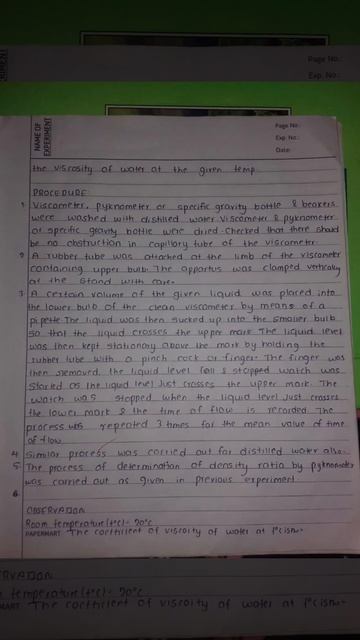 Page No.:
Exp. No.:
NAME OF EXPERIMENT
Page No.:
Exp. No.:
Date:
the viscosity of water at the given temp
PROCEDURE
1 Viscometer, pyknometer or specific gravity bottle & beakers
were washed with distilled water. Viscometer & pyknometer
or specific gravity bottle were dried. Checked that there should
be no obstruction in capillory tube of the viscometer
2 A rubber tube was attached at the limb of the viscometer
containing upper bulb. The appartus was clamped vertically
at the stand with care.
3 A certain volume of the given liquid was placed into
the lower bulb of the clean viscometer by means of a
pipette. The liquid was then sucked up into the smaller bulb
so that the liquid crosses the upper mark. The liquid level
was then kept stationary above the mark by holding the
rubber tube with a pinch cock or finger. The finger was
then removed, the liquid level fall & stopped watch was
started as the liquid level just crosses the upper mark. The
watch was stopped when the liquid level just crosses
the lower mark & the time of flow is recorded. The
process was repeated 3 times for the mean value of time
of flow.
4 Similar process was carried out for distilled water also.
5 The process of determination of density ratio by pyknometer
was carried out as given in previous experiment.
6
OBSERVATION
Room temperature (t°C) = 20°C
PAPERMART The coefficient of viscoity of water at t°C is
RVATION
temperature (t°C) = 20°C
MART The coefficient of viscoity of water at t°C is